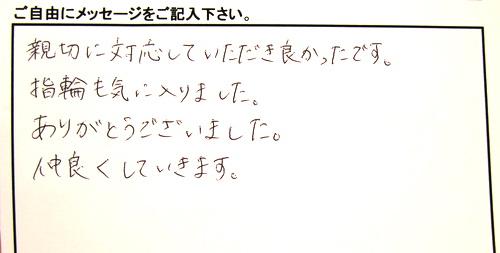 ご自由にメッセージをご記入下さい。
親切に対応していただき良かったです。
指輪も気に入りました。
ありがとうございました。
仲良くしていきます。